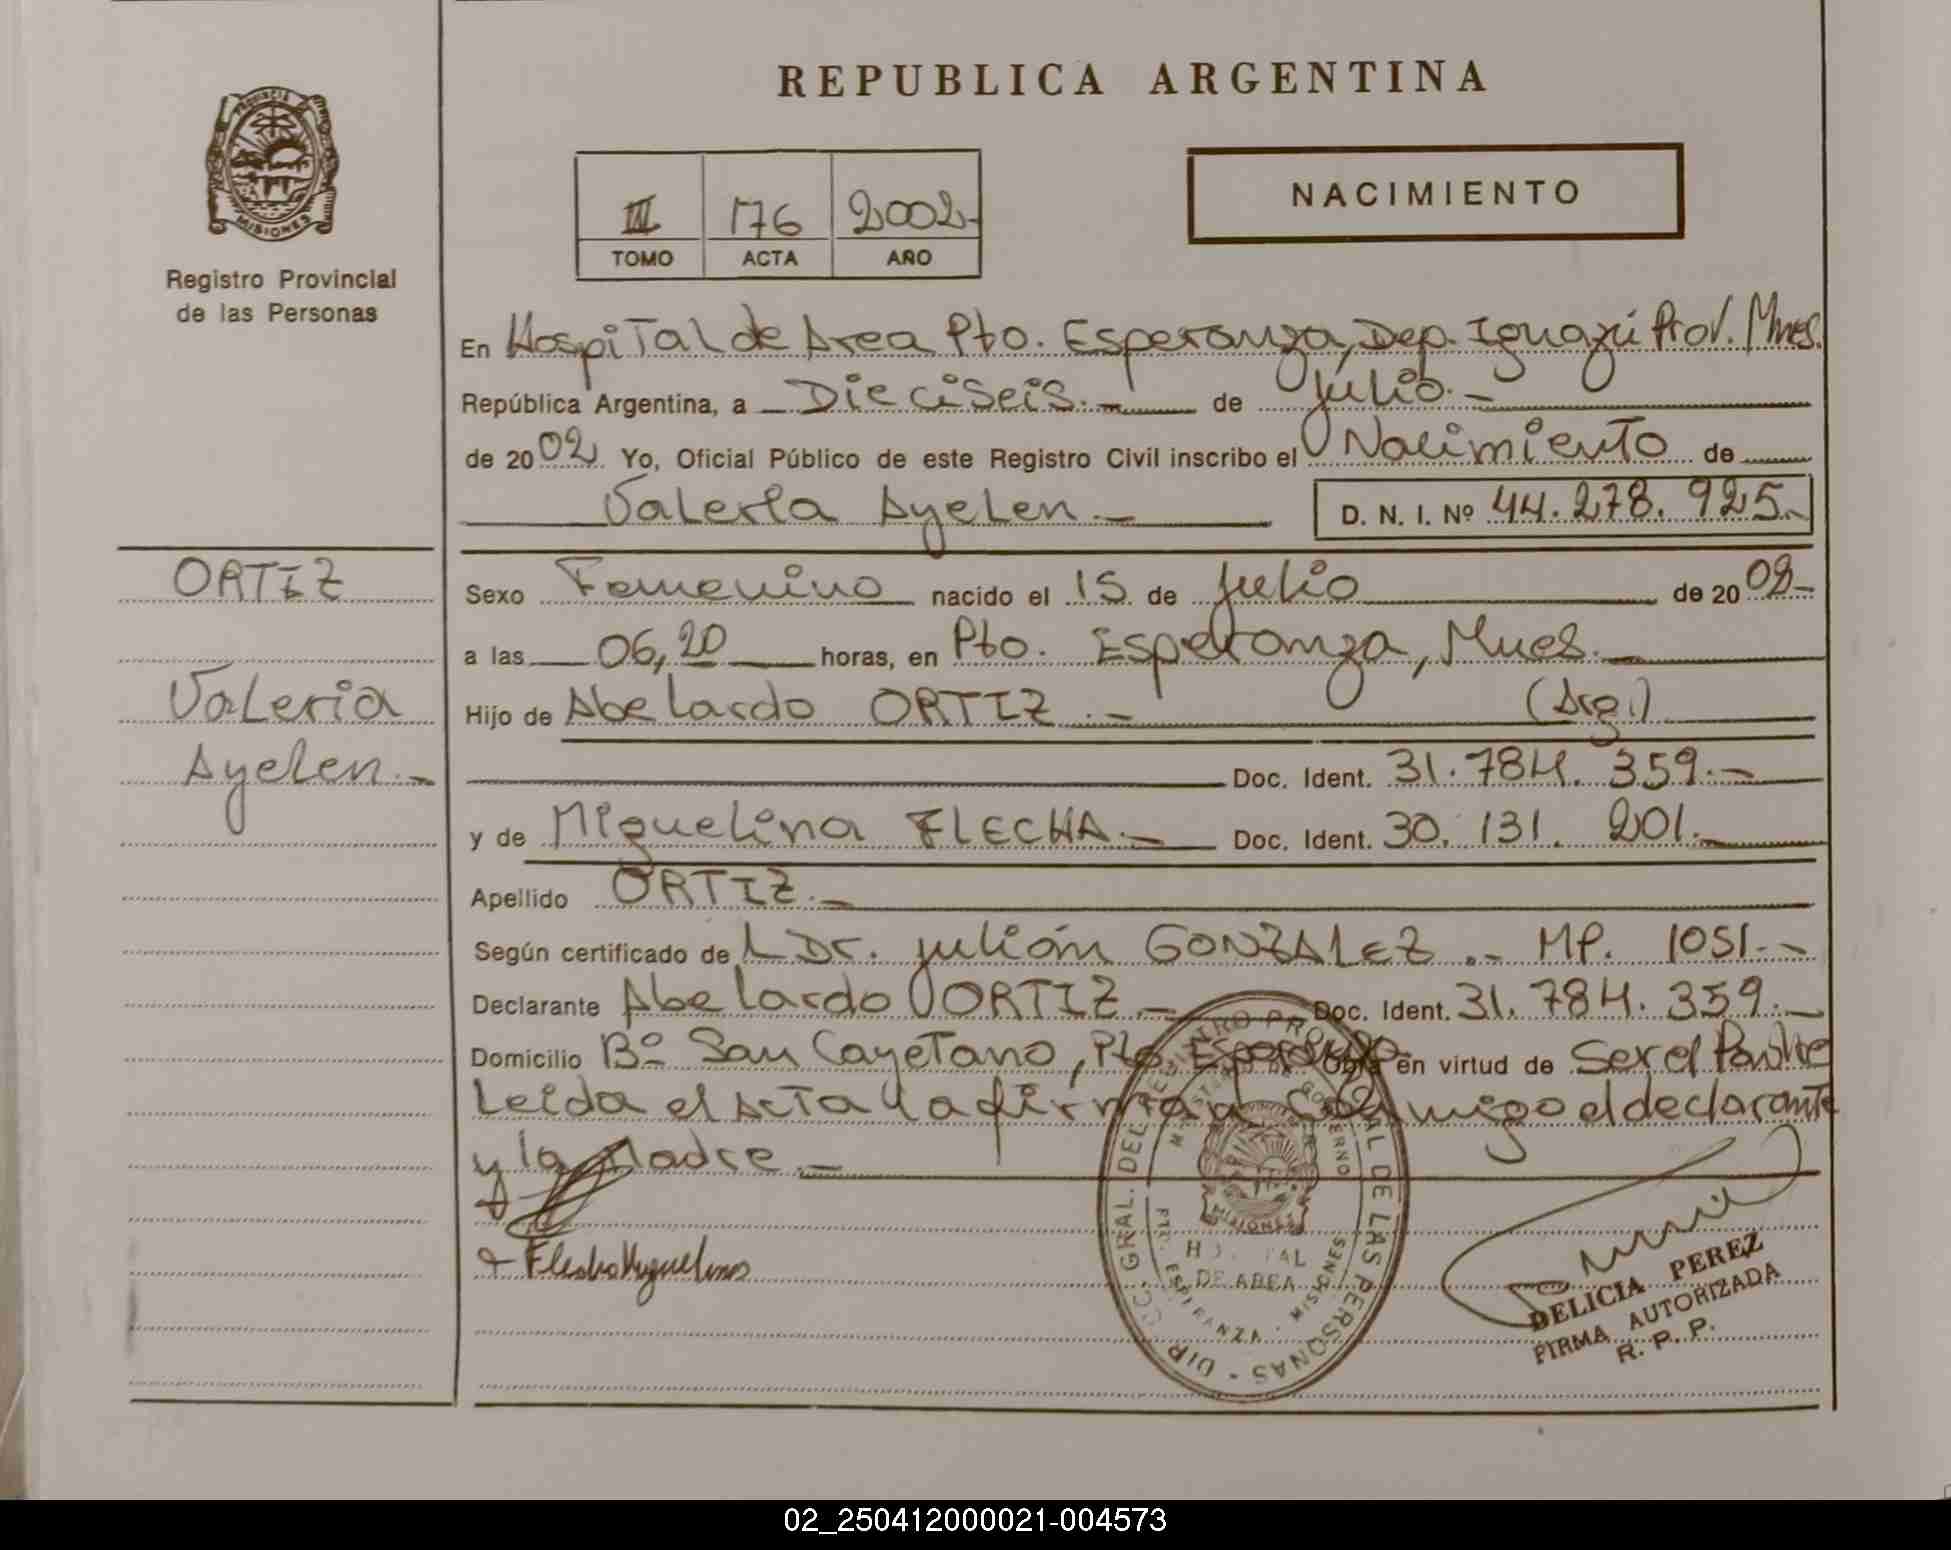 REPUBLICA ARGENTINA
PROVINCIA
MISIONES
Registro Provincial
de las Personas
III 176 2002-
TOMO ACTA AÑO
NACIMIENTO
En Hospital de Area Pto. Esperanza, Dep. Iguazú Prov. Mnes.
República Argentina, a Dieciseis.- de julio.-
de 2002 Yo, Oficial Público de este Registro Civil inscribo el Nacimiento de
Valeria Ayelen.- D. N. I. Nº 44.278.925.-
ORTIZ
Valeria
Ayelen.-
Sexo Femenino nacido el 15 de julio de 2002-
a las 06,20 horas, en Pto. Esperanza, Mnes.-
Hijo de Abelardo ORTIZ.- (Arg.)
Doc. Ident. 31.784.359.-
y de Miguelina FLECHA.- Doc. Ident. 30.131.201.-
Apellido ORTIZ.-
Según certificado de L Dr. julián GONZALEZ.- MP. 1051.-
Declarante Abelardo ORTIZ.- Doc. Ident. 31.784.359.-
Domicilio Bº San Cayetano, Pto Esperanza Obra en virtud de Ser el Padre
Leida el acta la firman conmigo el declarante
y la Madre.-
Flecha Miguelina
DIR. GRAL. DEL REGISTRO PROVINCIAL DE LAS PERSONAS
MINISTERIO DE GOBIERNO
MISIONES
HOSPITAL
DE AREA
PTO. ESPERANZA - MISIONES
DELICIA PEREZ
FIRMA AUTORIZADA
R. P. P.
02_250412000021-004573